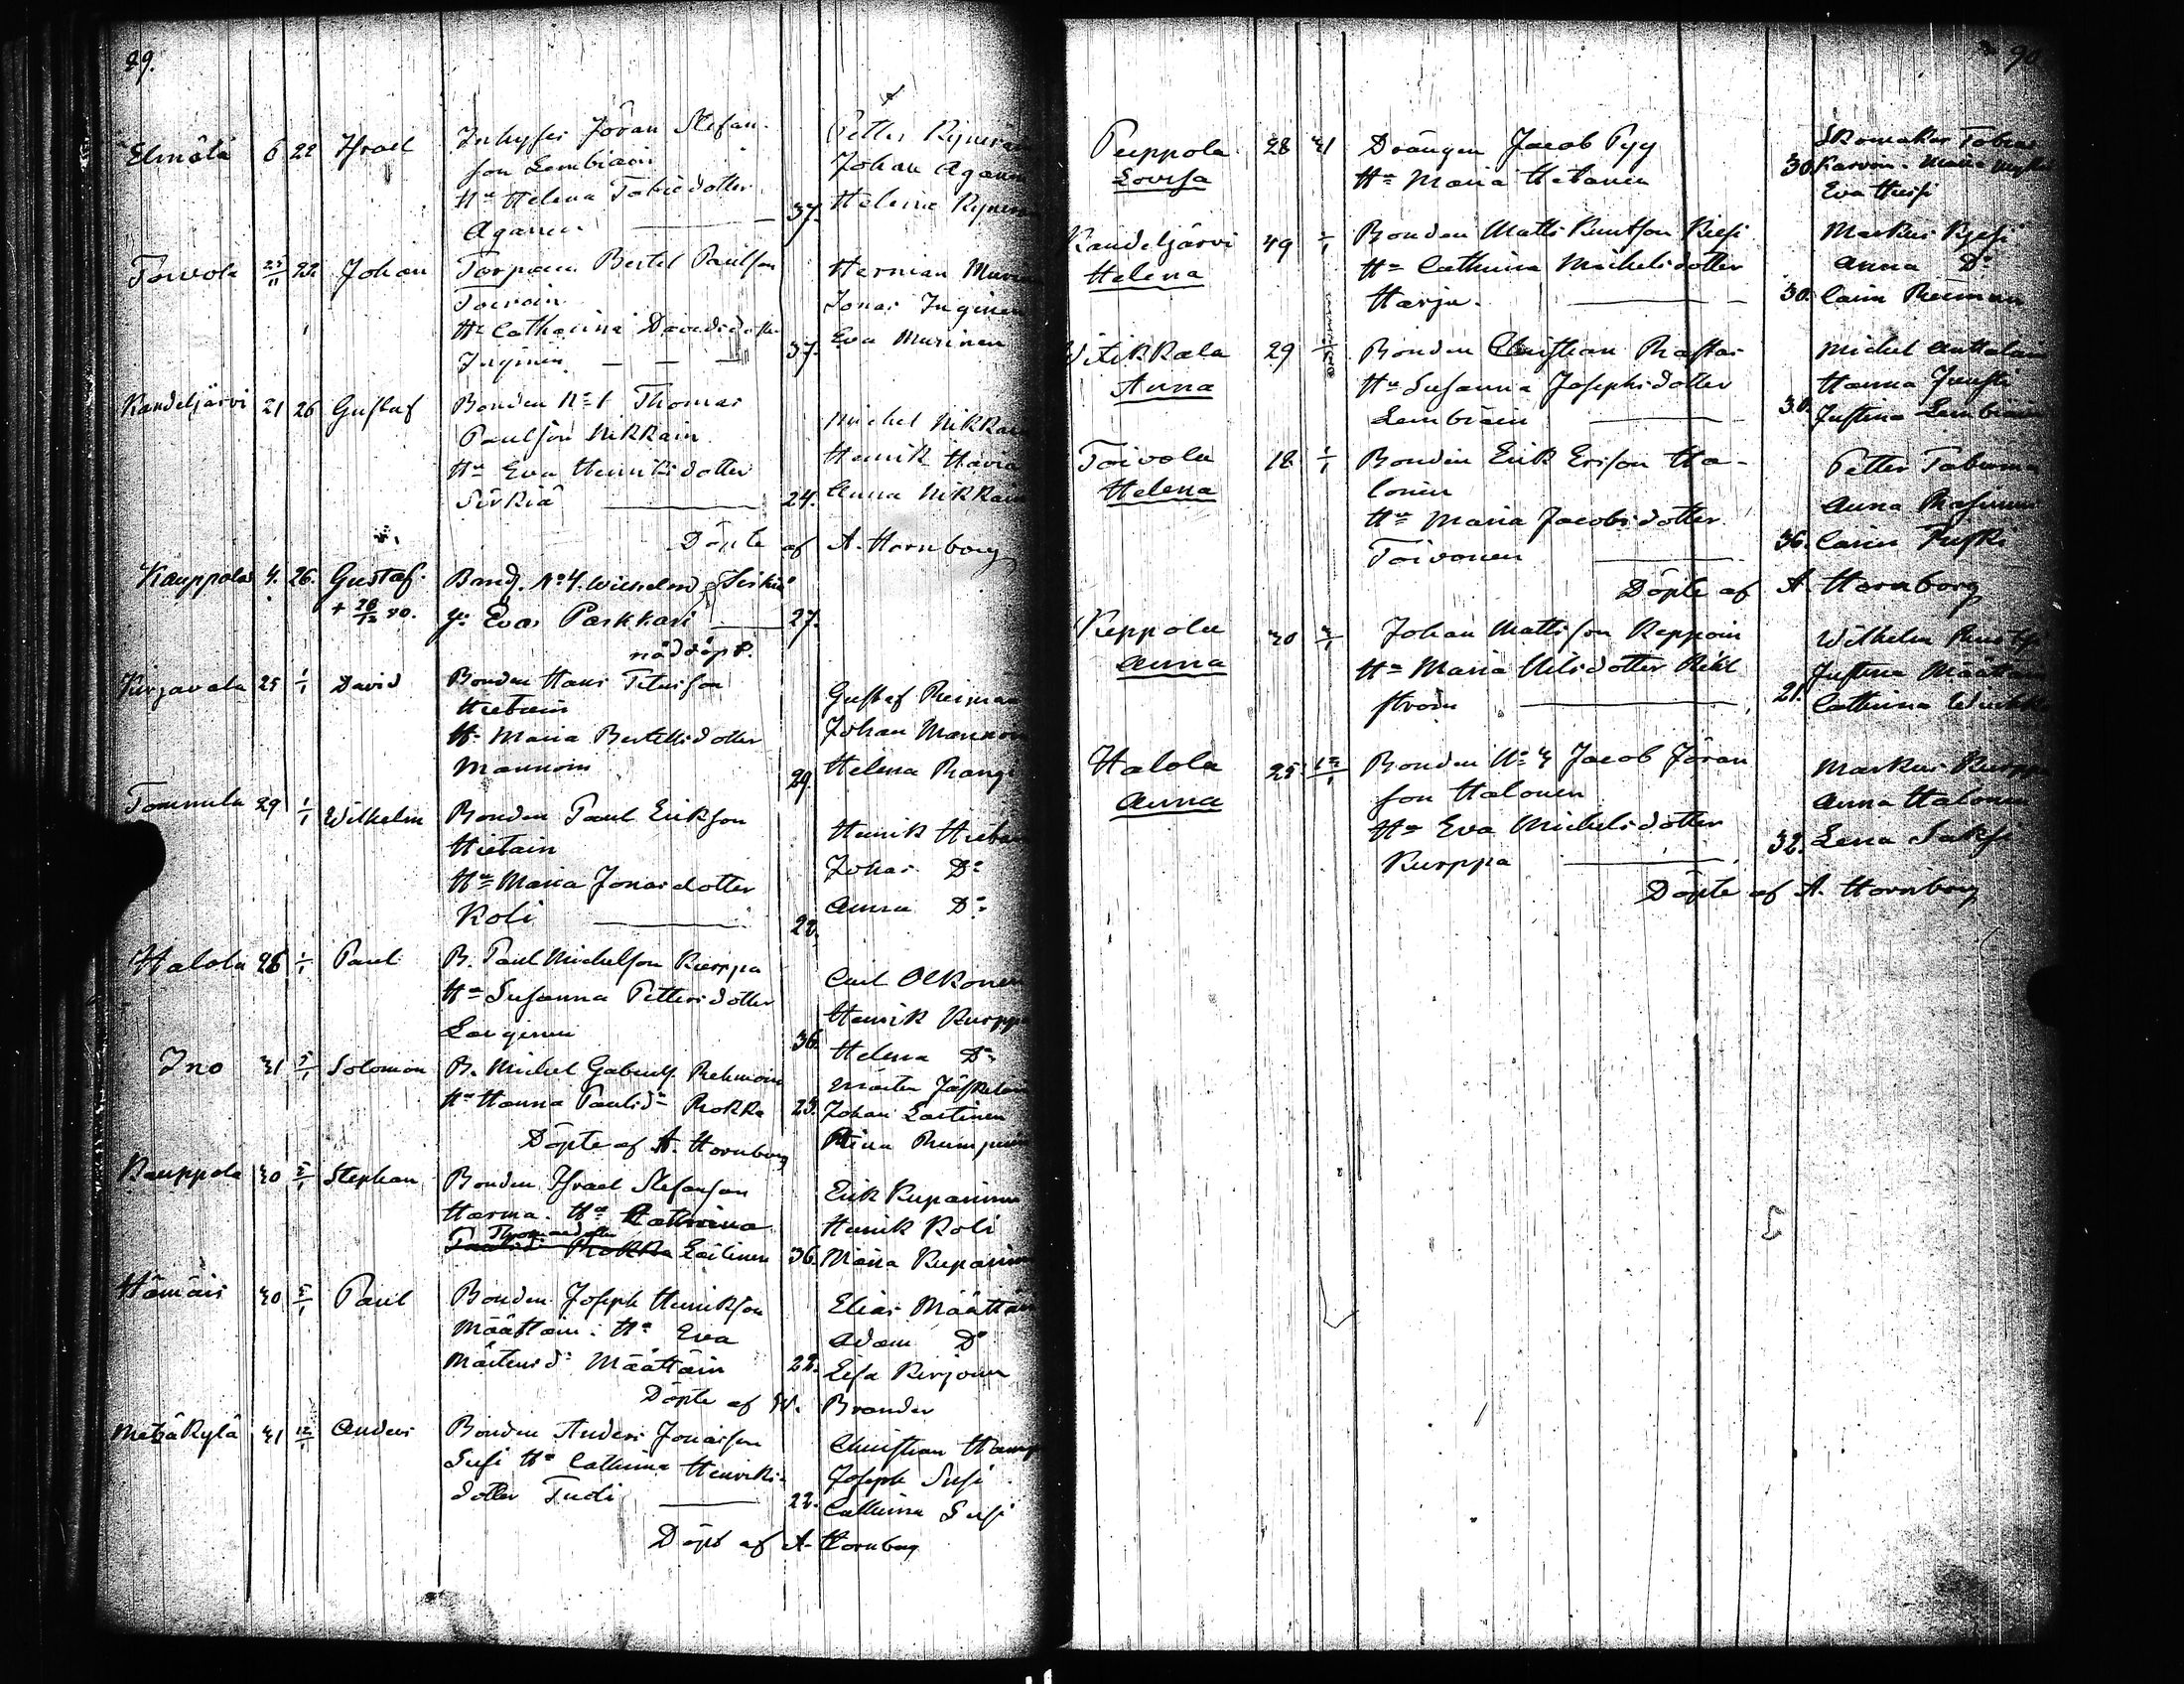 89.
Elmälä 6 22 Israel Inhyses Jöran Stefan-
son Lembiäin
Hu Helena Tobiedotter
Aganen 37.
Petter
Johan Aganen
Helena
Toivola 25/11 22 Johan Torparen Bertel Paulson
Toivoin
Hu Catharina Davidsdotter
Inginen 37.
Herman
Jonas Inginen
Eva Murinen
Kandeljärvi 21 26 Gustaf Bonden No 1 Thomas
Paulson Nikkain
Hu Eva Henriksdotter
Sirkiä 24.
Michel Nikkain
Henrik Havia
Anna Nikkain
Döpte af A. Hornborg
Kauppola 4. 26. Gustaf. Bond. No 4. Wilhelm Sirkiä
+ 28/12 20. y: Eva Parkkari 27.
nöddöpt.
Kirjavala 25 1/1 David Bonden Hans Titusson
Hietain
Hu Maria Bertelsdotter
Mannoin 29.
Gustaf Reiman
Johan Mannoin
Helena
Tommula 29 1/1 Wilhelm Bonden Paul Erikson
Hietain
Hu Maria Jonasdotter
Koli 22.
Henrik Hietain
Johan Do
Anna Do
Halola 28 1/1 Paul B. Paul Michelson Kurppa
Hu Susanna Pettersdotter
36.
Carl Olkonen
Henrik Kurppa
Helena Do
Ino 31 5/1 Solomon B. Michel Gabriels. Rehmoin
Hu Hanna Paulsd. Rokka 25.
Mårten Jäskelain
Johan Laitinen
Stina
Döpte af A. Hornborg
Kauppola 30 5/1 Stephan Bonden Israel Stefanson
Harma. Hu Cathrina
Thomasdotter
Paulsd. Rokka Laitinen 36.
Erik Kuparinen
Henrik Koli
Maria Kuparinen
Hämäis 30 5/1 Paul Bonden Joseph Henrikson
Määttäin: Hu Eva
Mårtensd: Määttäin 28.
Elias Määttäin
Adam Do
Lisa Kirjoin
Döpte af W. Brander
Metzäkylä 31 12/1 Anders Bonden Anders Jonasson
Susi Hu Cathrina Henriks-
dotter Tudi 22.
Christian
Joseph Susi
Cathrina Susi
Döpt af A. Hornborg
90
Peippola 28 31 Drängen Jacob Pyy
Lovisa Hu Maria Hetanen 30.
Skomakar Tobias
Karvin. Maria
Eva
Kandeljärvi 29 1/1 Bonden Matts Knutson Kiesi
Helena Hu Cathrina Michelsdotter
Harju. 30.
Markus Kiesi
Anna Do
Carin Reiman
Witikkala 29 Bonden Christian Rastas
Anna Hu Susanna Josephsdotter
Lembiäin 30.
Michel Anttalain
Hanna
Justina Lembiäin
Toivola 18 1/1 Bonden Erik Erikson Ha-
Helena lonen
Hu Maria Jacobsdotter
Toivonen 36.
Petter
Anna
Carin
Döpte af A. Hornborg
Reppola 30 Johan Mattsson Reppoin
Anna Hu Maria Nilsdotter
ström 21.
Wilhelm
Justina Määttäin
Cathrina
Halola 25 12/1 Bonden No 4 Jacob Jöran
Anna son Halonen
Hu Eva Michelsdotter
Kurppa 32.
Markus Kurppa
Anna Halonen
Lena Saksi
Döpte af A. Hornborg